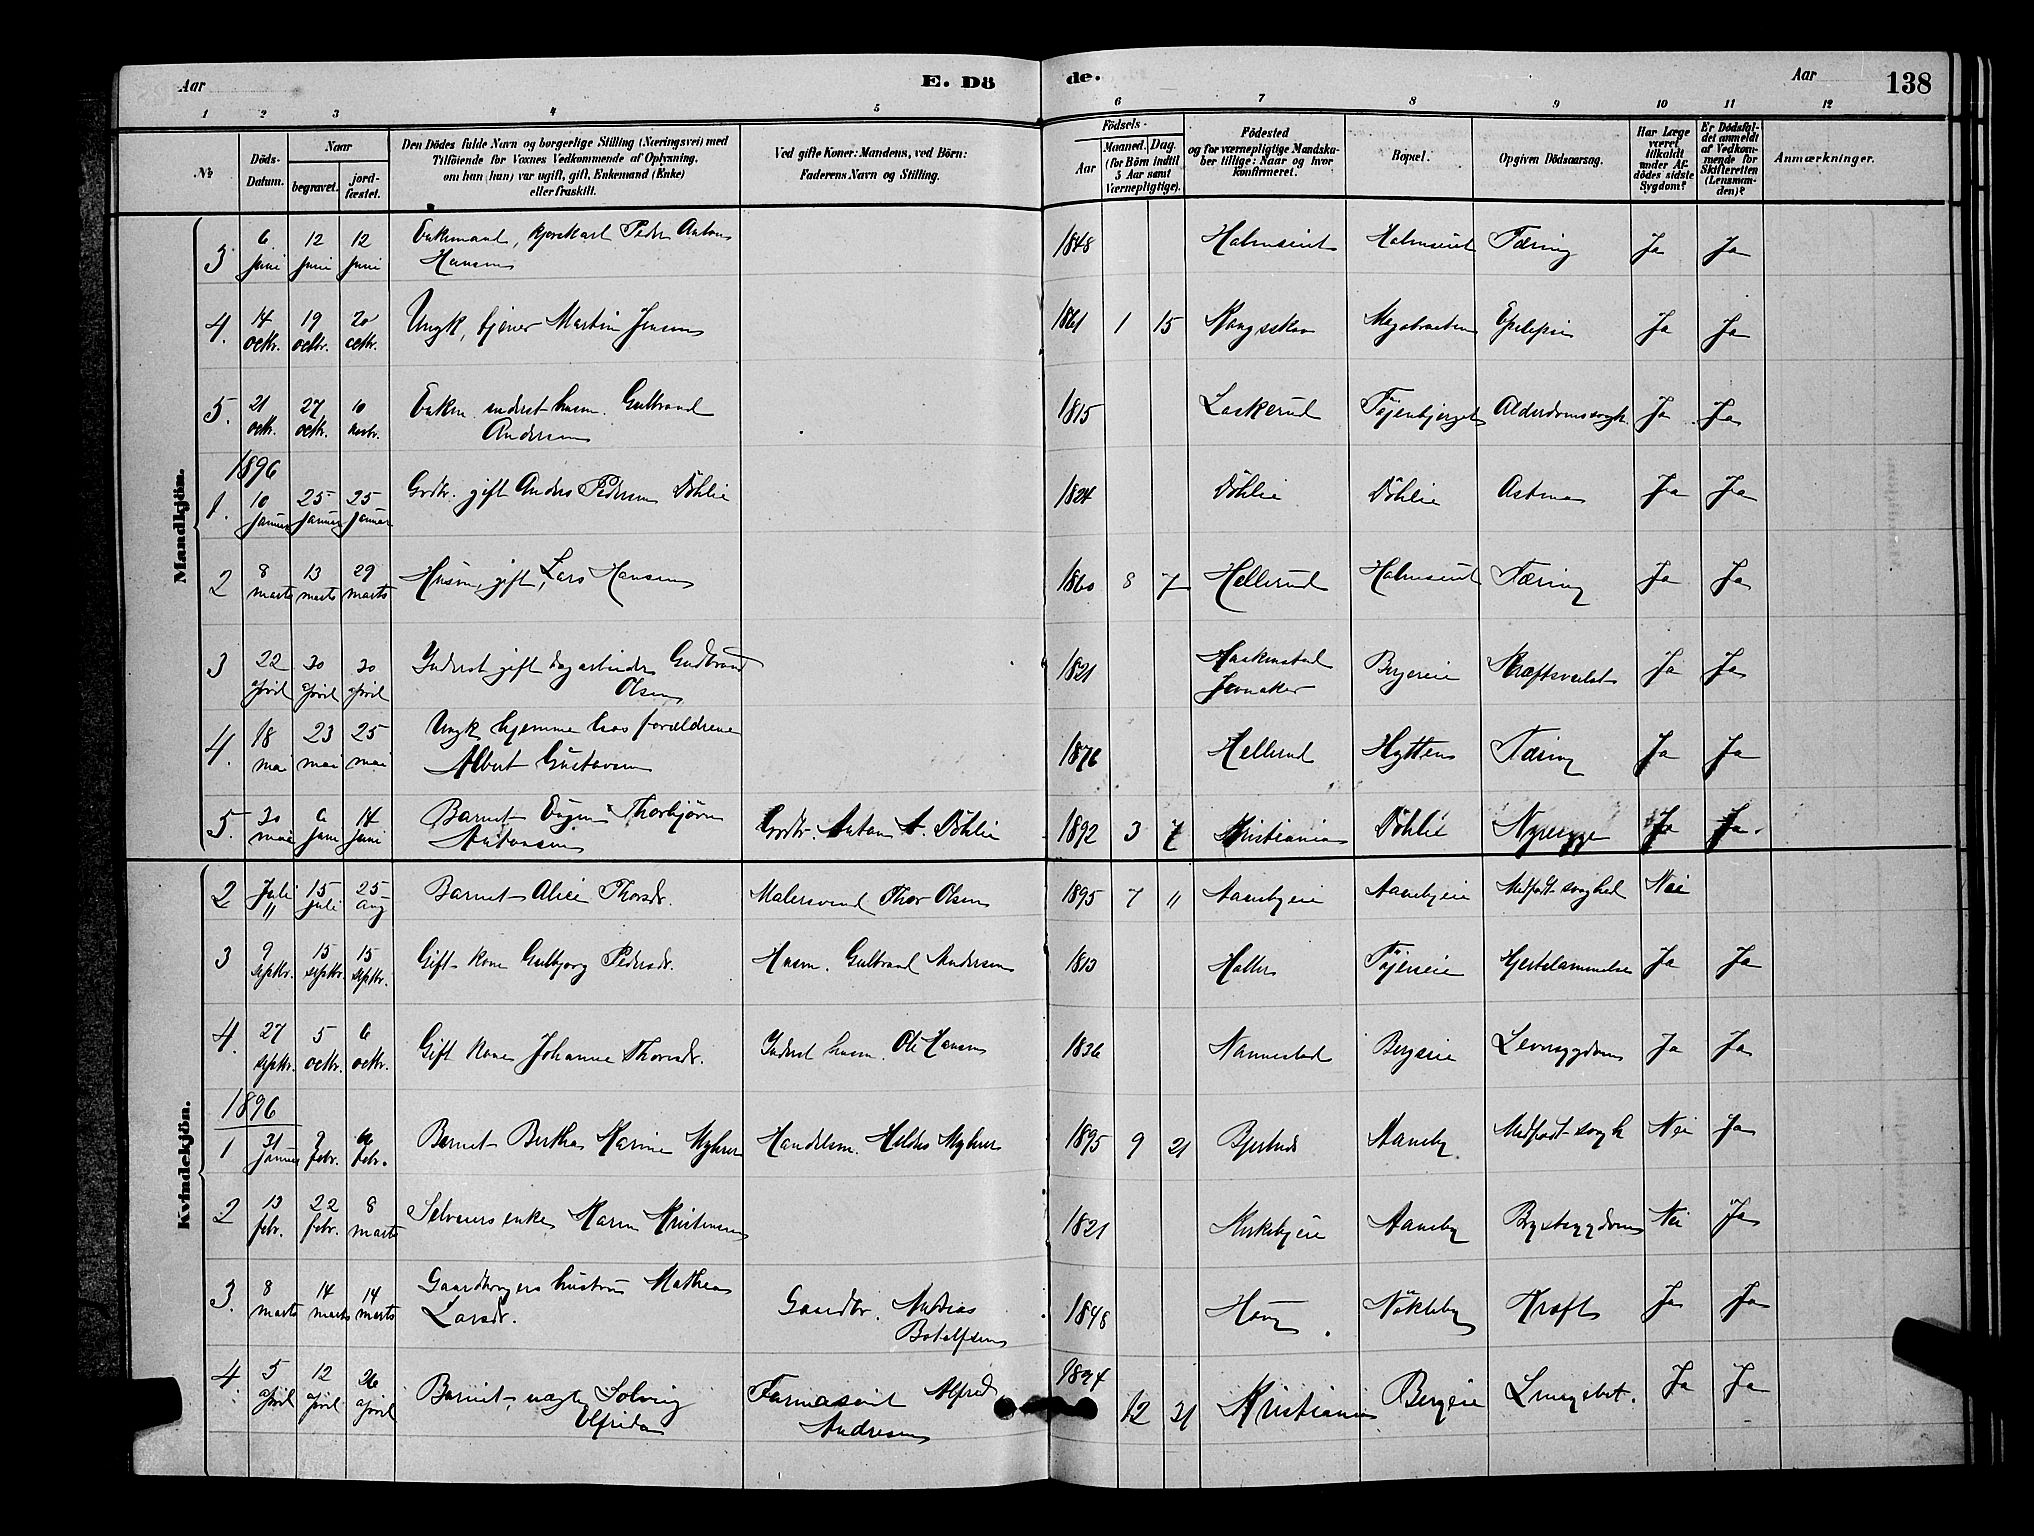 Aar
E. Dö
de.
Aar
138
1 2 3 4 5 6 7 8 9 10 11 12
№
Döds-Datum.
Naar
begravet.
jord-fæstet.
Den Dödes fulde Navn og borgerlige Stilling (Næringsvei) med
Tilföiende for Voxnes Vedkommende af Oplysning,
om han (hun) var ugift, gift, Enkemand (Enke)
eller fraskilt.
Ved gifte Koner: Mandens, ved Börn:
Faderens Navn og Stilling.
Födsels-
Aar
Maaned. Dag.
(for Börn indtil
5 Aar samt
Værnepligtige).
Födested
og for værnepligtige Mandska-
ber tillige: Naar og hvor
konfirmeret.
Bopæl.
Opgiven Dödsaarsag.
Har Læge
været
tilkaldt
under Af-
dödes sidste
Sygdom?
Er Dödsfal-
det anmeldt
af Vedkom-
mende for
Skifteretten
(Lensman-
den)?
Anmærkninger.
Mandkjön.
3. 6 juni 12 juni 12 juni Enkemand, Peder Anton Hansen 1848 Holmseiet Holmseiet Tæring Ja Ja
4. 14 octbr. 19 octbr. 20 octbr. Ungk, tjener Martin Jensen 1861 1 15 Epilepsi Ja Ja
5. 21 octbr. 27 octbr. 10 novbr. Enkm. inderst husm. Gulbrand Andersen 1815 Laskerud Töienbjerget Alderdomssvagh. Ja Ja
1896
1. 10 januar 25 januar 25 januar Grdbr. gift Anders Pedersen Döhlie 1824 Döhlie Döhlie Astma Ja Ja
2 8 marts 13 marts 29 marts Husm, gift, Lars Hansen 1860 8 7 Hellerud Holmseiet Tæring Ja Ja
3 22 april 30 april 30 april Inderst gift dagarbeider Gudbrand Olsen 1821 Haakenstad Jevnaker Bergereie Kræftsvulst Ja Ja
4. 18 mai 23 mai 25 mai Ungk hjemme hos forældrene Albert Gustavsen 1876 Hellerud Hytten Tæring Ja Ja
5. 30 mai 6 juni 14 juni Barnet Eugen Thorbjørn Antonsen Grdbr. Anton A. Döhlie 1892 3 7 Kristiania Döhlie Nyresyge Ja Ja.
Kvindekjön.
2 Juli " 15 juli 25 aug Barnet Alice Thorsdr. Malersvend Thor Olsen 1895 7 " Aanebyeie Aanebyeie Medfødt svaghed Nei
3 9 septbr. 15 septbr. 15 septbr. Gift kone Gulbjørg Pedersdr. Husm. Gulbrand Andersen 1813 Töieneie Hjertelammelse Ja Ja
4. 27 septbr. 5 octbr. 6 octbr. Gift kone Johanne Thorsdr. Inderst husm. Ole Hansen 1836 Nannestad Bergereie Leversygdom Ja Ja
1896
1 31 januar 9 febr. febr. Barnet Bertha Karine Myhrer Handelsm. Myhrer 1895 9 21 Bjertnes Aaneby Medfødt svagh Nei Ja
2 13 febr. 22 febr. 8 marts Selveiers enke Karen Kristiansen 1821 Kirkebyeie Aaneby Brystsygdom Nei Ja
3. 8 marts 14 marts 14 marts Gaardbrugers hustru Mathea Larsdr. Gaardbr. Andreas Botolfsen 1848 Haug Nökleby Kræft Ja Ja
4. 5 april 12 april 26 april Barnet, uægte Solveig Elfrida Farmasøit Alfred Andresen 1894 12 31 Kristiania Bergeie Lungebet. Ja Ja